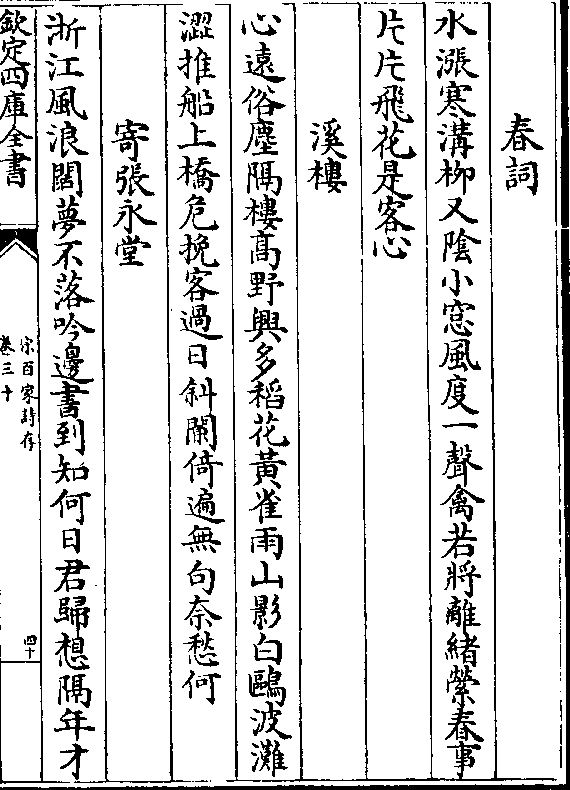 春詞
水漲寒溝柳又陰小窓風度一聲禽若將離緒縈春事
片片飛花是客心
溪樓
心遠俗塵隔樓髙野興多稻花黃雀雨山影白鷗波灘
澀推船上橋危挽客過日斜闌倚遍無句奈愁何
寄張永堂
浙江風浪闊夢不落吟邊書到知何日君歸想隔年才
欽定四庫全書
宋百家詩存
卷三十
四十